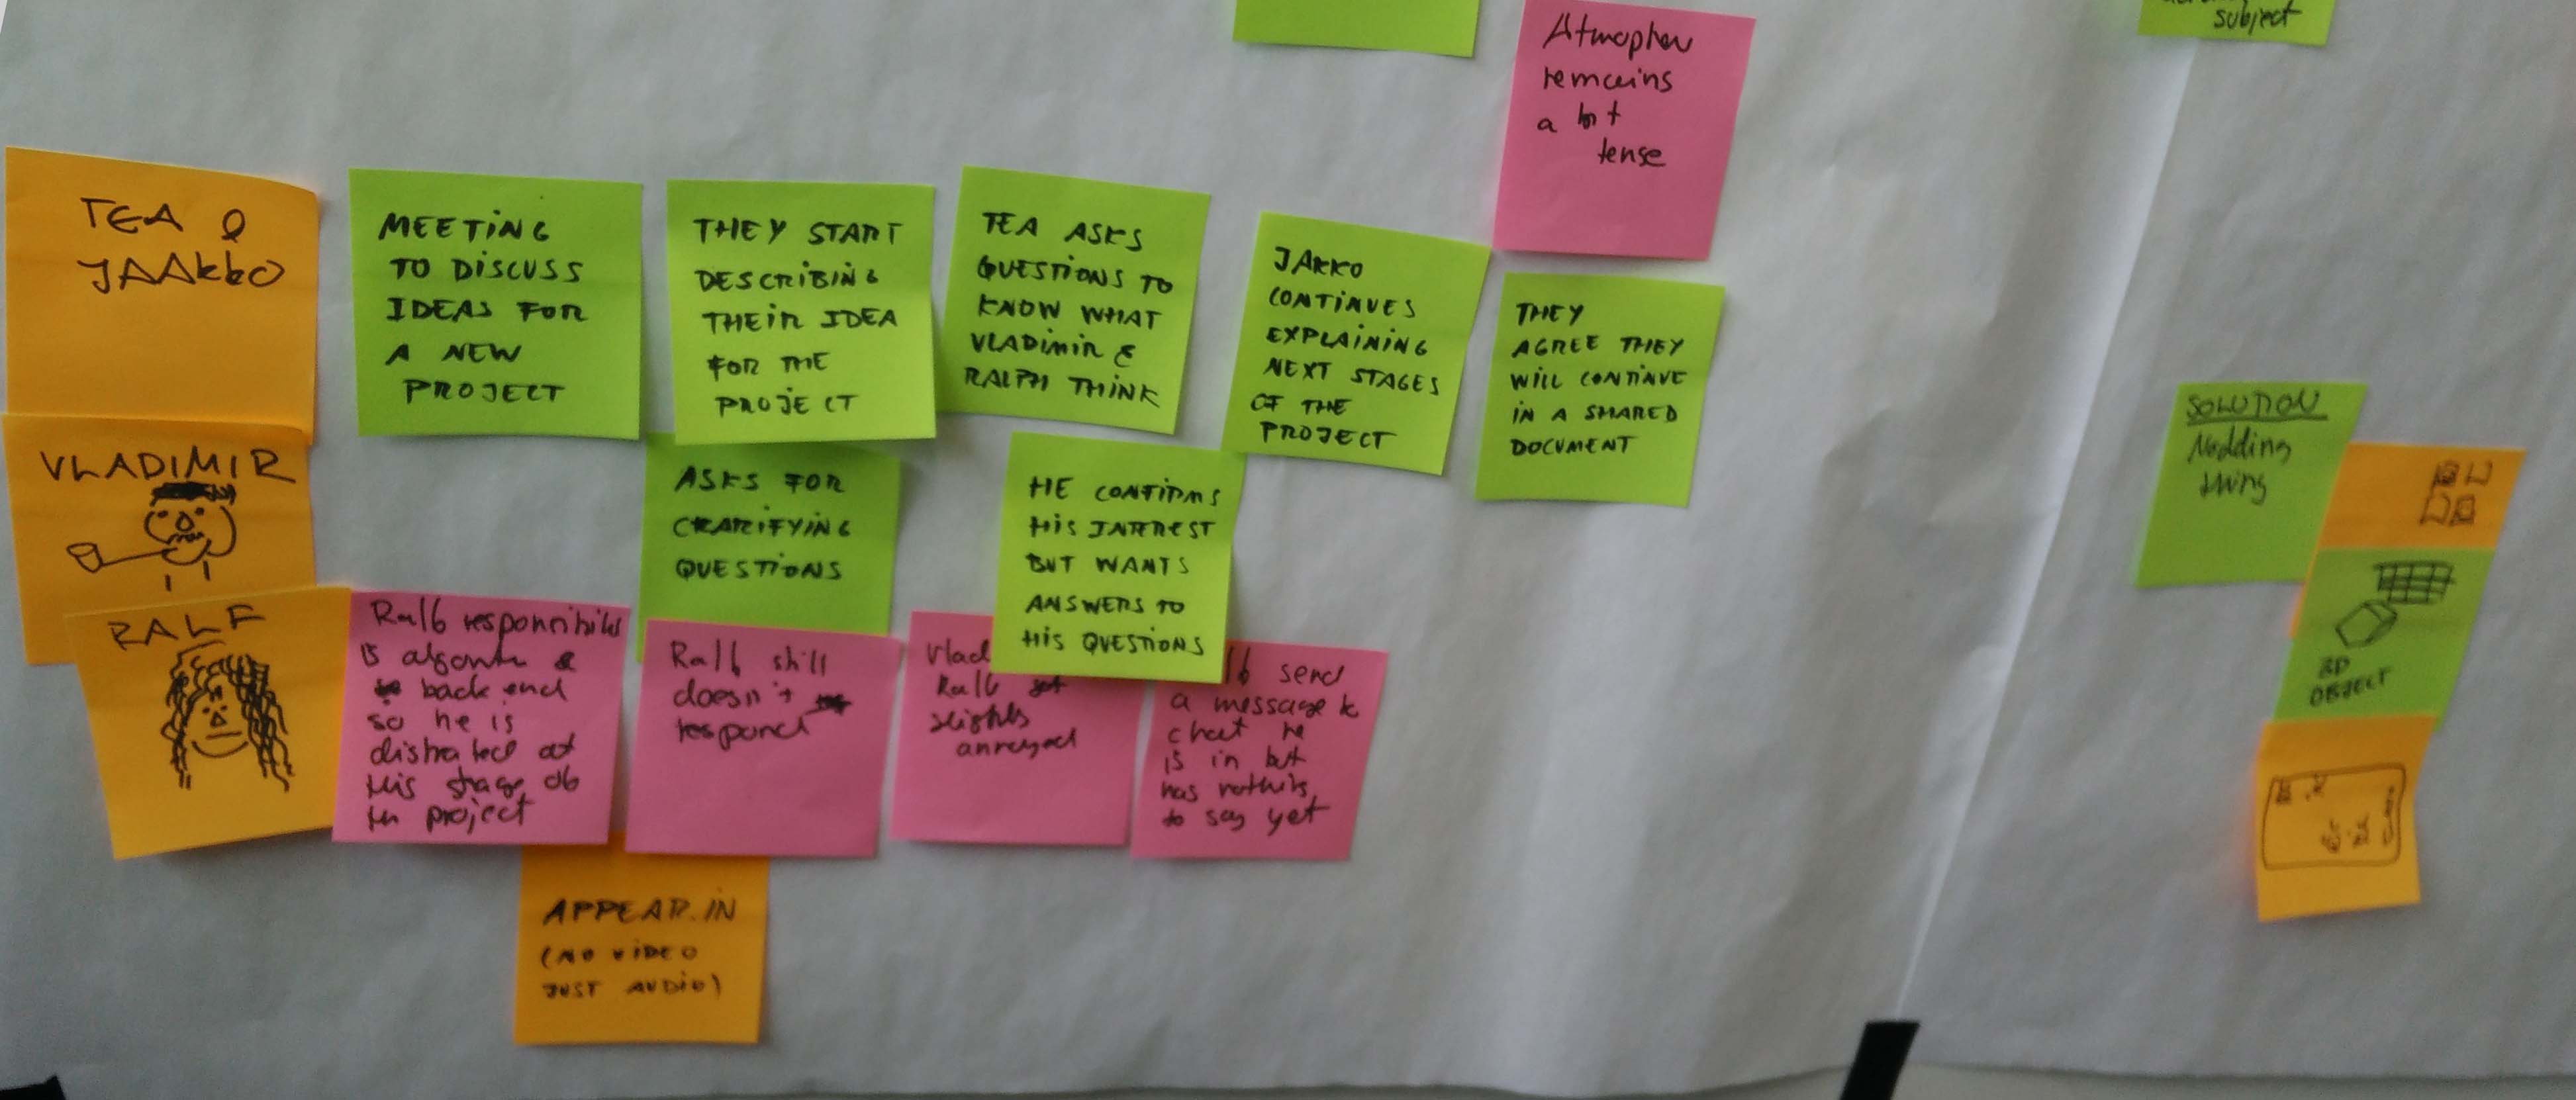 subject
Atmospher
remains
a bit
tense
TEA &
JAAkkO
MEETING
TO DISCUSS
IDEAS FOR
A NEW
PROJECT
THEY START
DESCRIBING
THEIR IDEA
FOR THE
PROJECT
TEA ASKS
QUESTIONS TO
KNOW WHAT
VLADIMIR &
RALPH THINK
JAKKO
CONTINUES
EXPLAINING
NEXT STAGES
OF THE
PROJECT
THEY
AGREE THEY
WILL CONTINUE
IN A SHARED
DOCUMENT
VLADIMIR
ASKS FOR
CRARIFYING
QUESTIONS
HE CONFIRMS
HIS INTEREST
BUT WANTS
ANSWERS TO
HIS QUESTIONS
RALF
Ralf
is
back end
so he is
at
this stage of
project
Ralf still
doesn't
respond
Vlad
Ralf
slightly
annoyed
send
a message
chat he
is in but
has nothing
to say yet
APPEAR.IN
(NO VIDEO
JUST AUDIO)
SOLUTION
Nodding
thing
3D
OBJECT